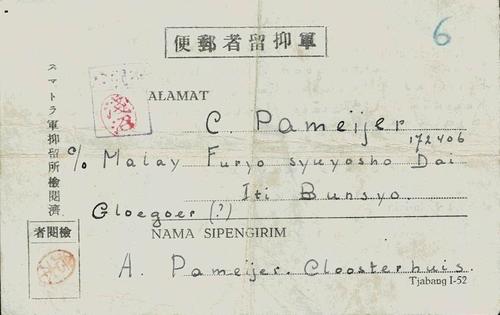 便郵者留抑軍
6
スマトラ軍抑留所檢閲濟
淺沼
ALAMAT
C. Pameijer
172406
c/o Malay Furyo syuyosho Dai
Iti Bunsyo.
Gloegoer (?)
者閲檢
NAMA SIPENGIRIM
A. Pameijer. Cloosterhuis.
Tjabang I-52